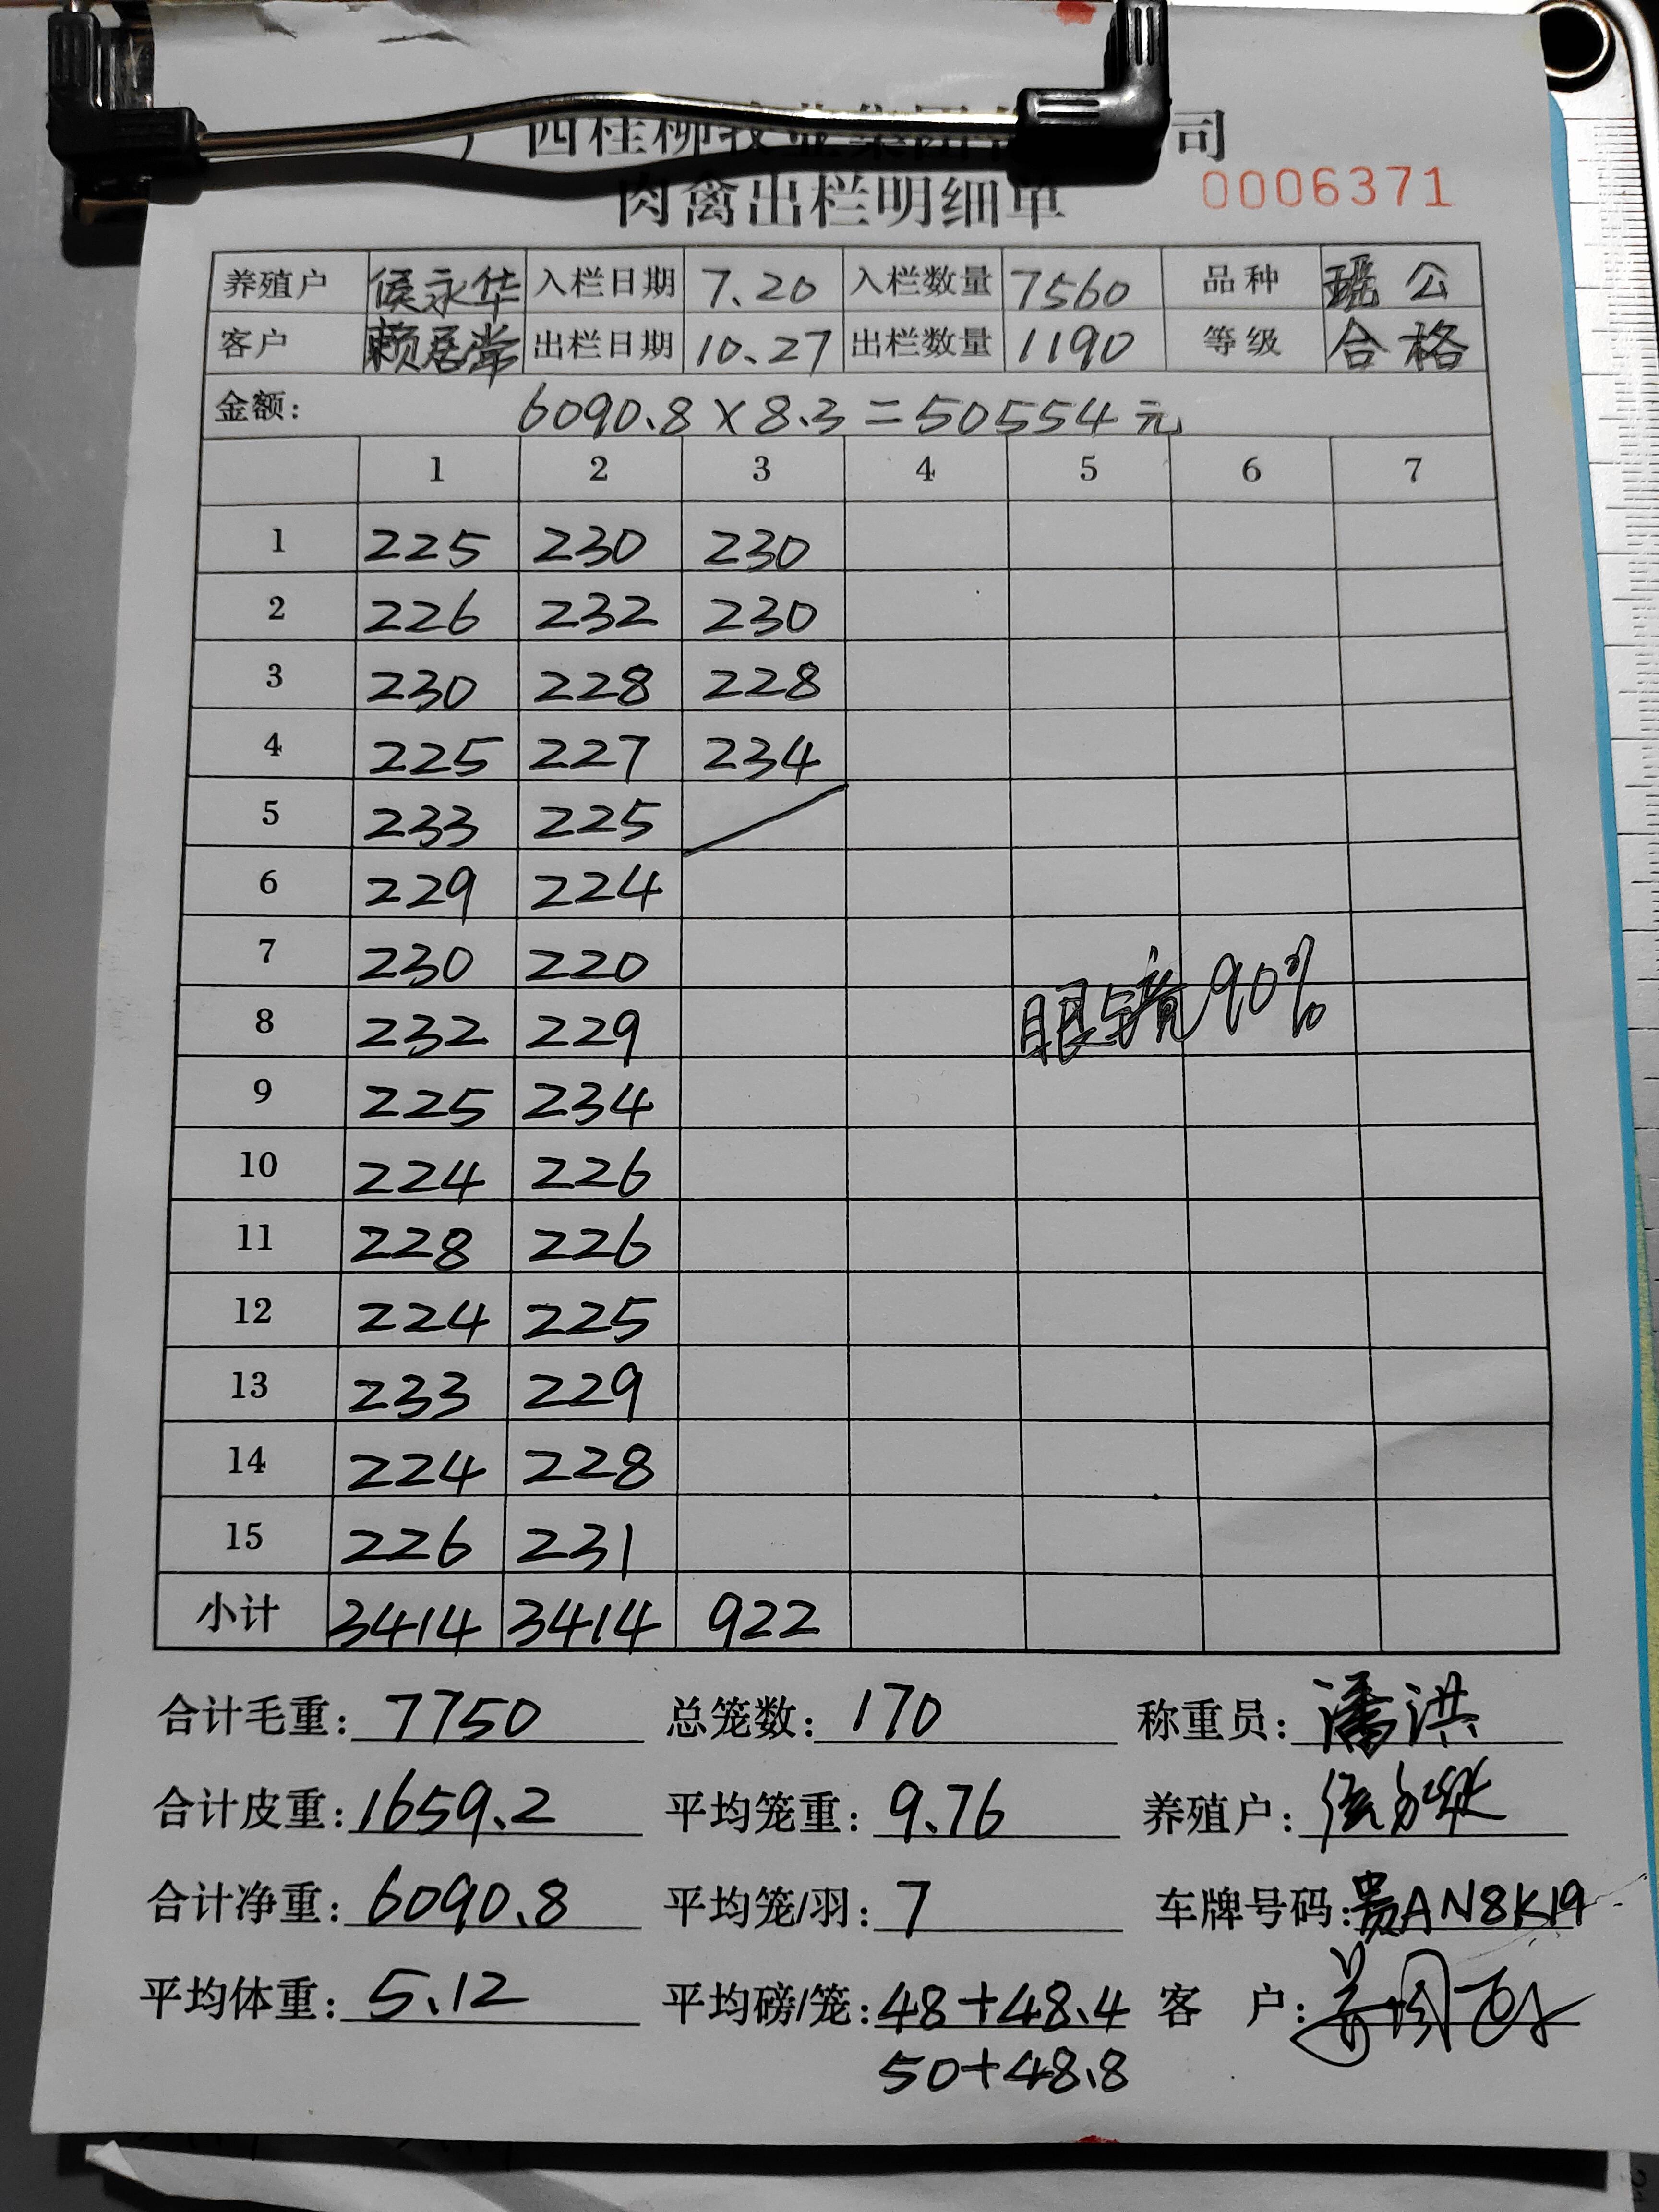 西桂柳牧业集团 司
肉禽出栏明细单 0006371
养殖户 侯永华 入栏日期 7.20 入栏数量 7560 品种 公
客户 赖居常 出栏日期 10.27 出栏数量 1190 等级 合格
金额: 6090.8×8.3=50554元
1 2 3 4 5 6 7
1 225 230 230
2 226 232 230
3 230 228 228
4 225 227 234
5 233 225
6 229 224
7 230 220
8 232 229
眼镜90%
9 225 234
10 224 226
11 228 226
12 224 225
13 233 229
14 224 228
15 226 231
小计 3414 3414 922
合计毛重: 7750 总笼数: 170 称重员: 潘洪
合计皮重: 1659.2 平均笼重: 9.76 养殖户: 侯永华
合计净重: 6090.8 平均笼/羽: 7 车牌号码: 贵AN8K19
平均体重: 5.12 平均磅/笼: 48+48.4 客 户:
50+48.8